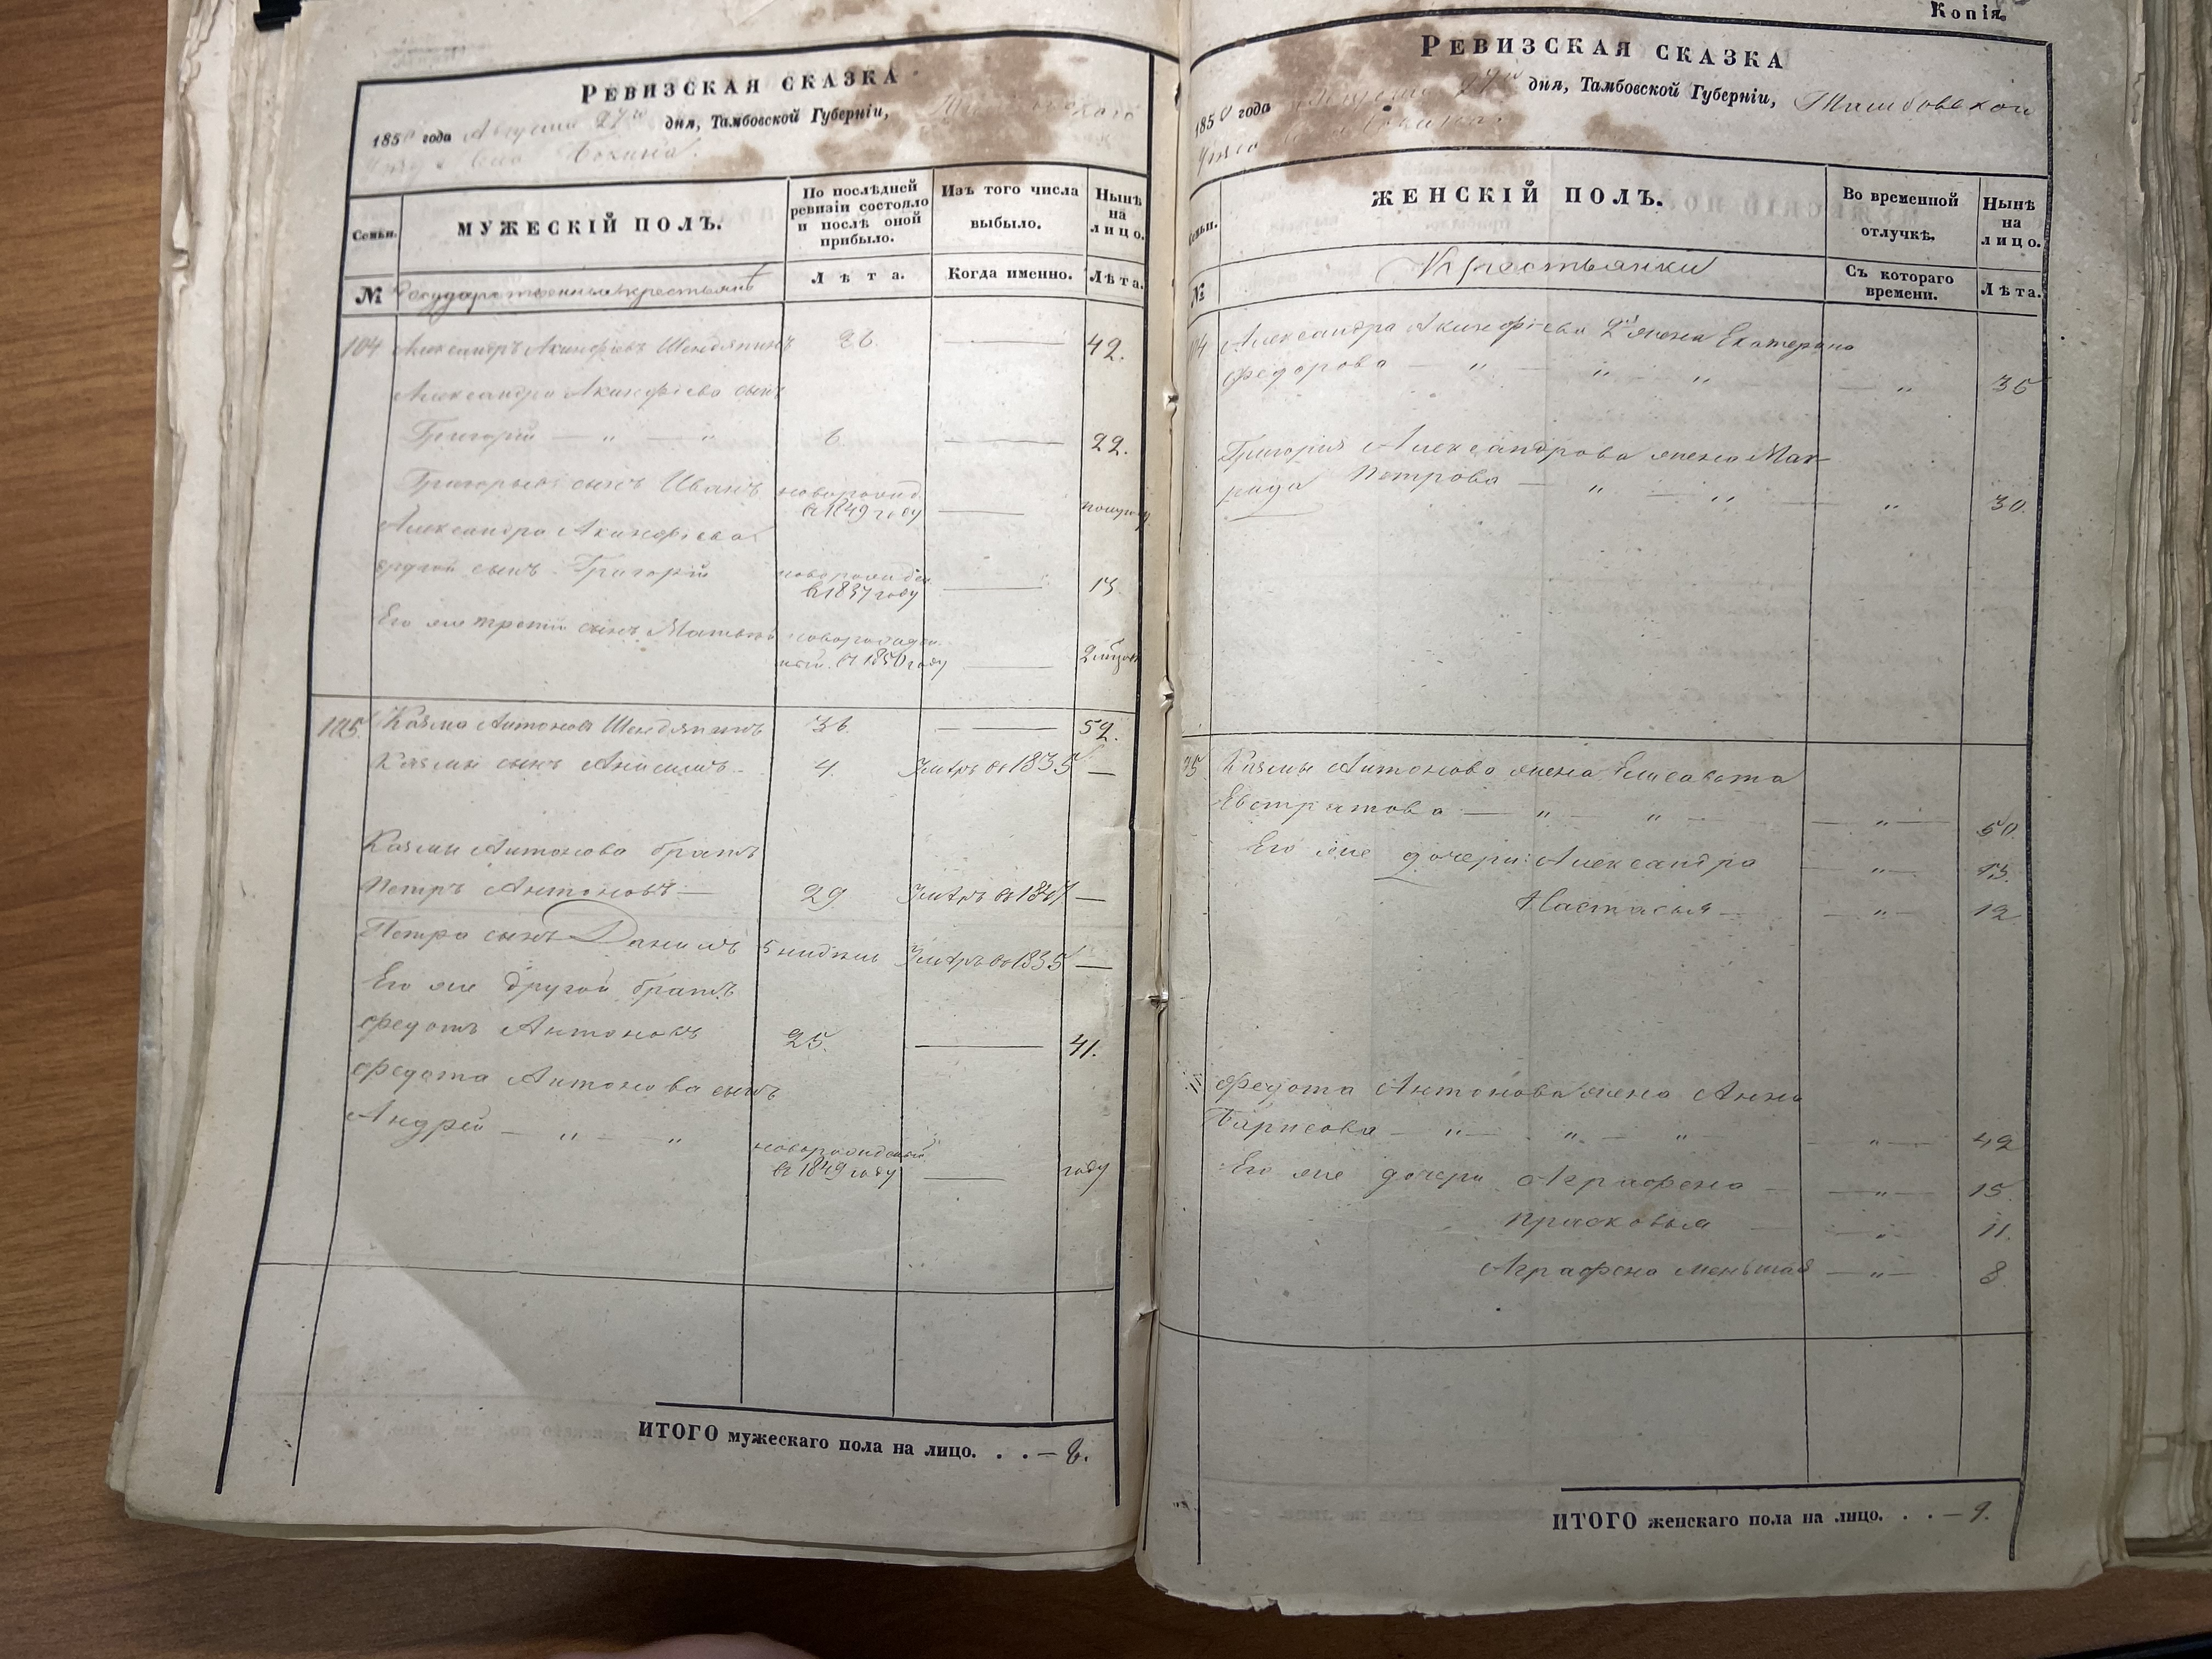 РЕВИЗСКАЯ СКАЗКА
1850 года Августа 27го дня, Тамбовской Губерніи,
МУЖЕСКІЙ ПОЛЪ.
Семьи.
По послѣдней ревизіи состояло и послѣ оной прибыло.
Изъ того числа выбыло.
Нынѣ на лицо.
Лѣта.
Когда именно.
Лѣта.
№ Государственные крестьяне
104 Александръ Акинфіевъ Шендяпинъ 26. — 42.
Александра Акинфіева сынъ
Григорій — " — " 6. — 22.
Григорьевъ сынъ Иванъ новорожд.
въ 1849 году — полугоду
Александра Акинфіева
другой сынъ Григорій новорожден
въ 1837 году — 13
Его же третій сынъ Матвей новорожден-
ный въ 1850 году — 2 мѣсяц
105. Козма Антоновъ Шендяпинъ 36. — 52.
Козмы сынъ Анисимъ 4. Умѣръ въ 1835 —
Козмы Антонова братъ
Петръ Антоновъ — 29 Умѣръ въ —
Петра сынъ Данилъ 5 нидѣль Умѣръ въ 1835 —
Его же другой братъ
Федотъ Антоновъ 25. — 41.
Федота Антонова сынъ
Андрей — " — " новорожденный
въ 1849 году — году
ИТОГО мужескаго пола на лицо. . . — 8.
Копія.
РЕВИЗСКАЯ СКАЗКА
1850 года Августа 27го дня, Тамбовской Губерніи, Тамбовской
Семьи.
ЖЕНСКІЙ ПОЛЪ.
Во временной отлучкѣ.
Нынѣ на лицо.
№
Крестьянки
Съ котораго времени.
Лѣта.
104 Александра Акинфіева 2я жена Екатерина
Федорова — " — " " — " 35
Григорія Александрова жена Мав-
Петрова — " — " — " 30.
Козмы Антонова жена Елисавета
Евстратова — " — " — — " — 50
Его же дочери: Александра — " — 13.
Настасья — — " — 12
Федота Антонова жена Анна
Барисова — " — " — " — — " — 42
Его же дочери Аграфена — — " — 15.
Прасковья — " 11.
Аграфена меньшая — " — 8
ИТОГО женскаго пола на лицо. . . — 9.